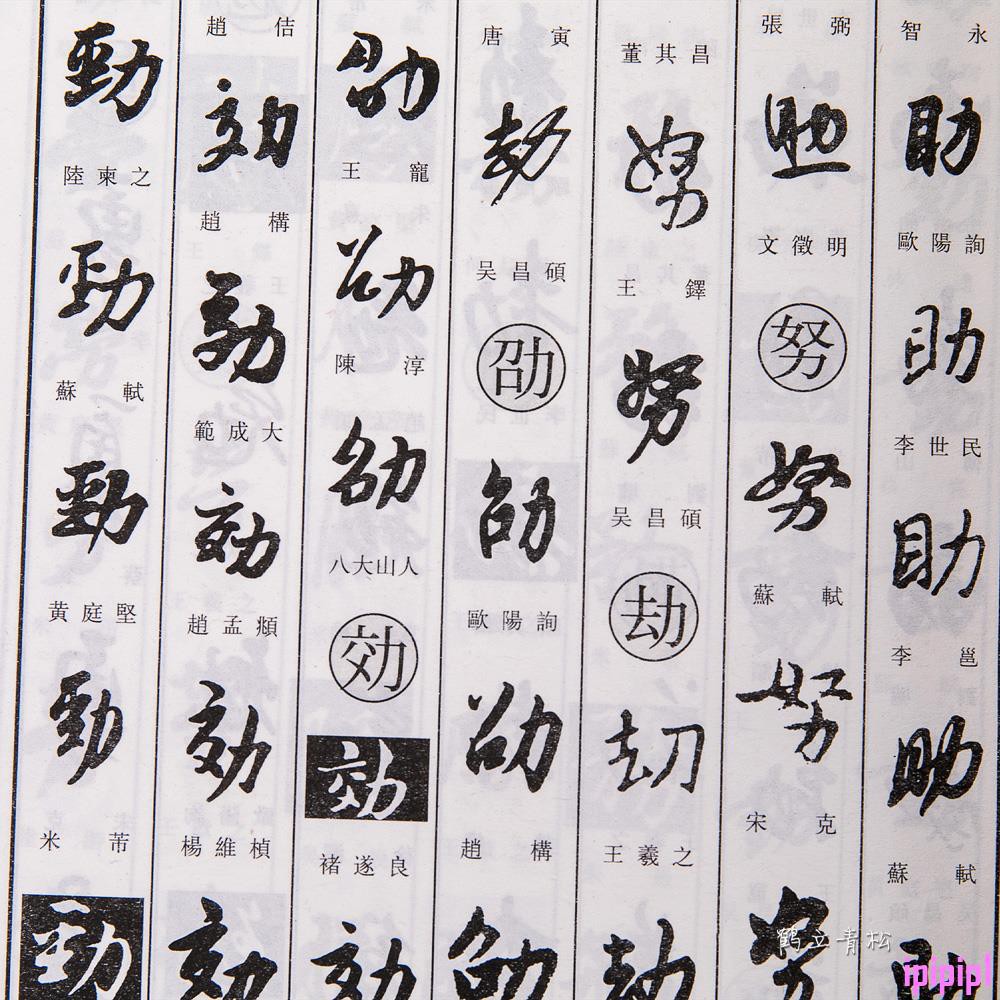 智永
助
歐陽詢
助
李世民
助
李邕
助
蘇軾
助
張弼
助
文徵明
努
努
蘇軾
努
宋克
努
董其昌
努
王鐸
努
吴昌碩
劫
刧
王羲之
劫
唐寅
劫
吴昌碩
劭
劭
歐陽詢
劭
趙構
劭
劭
王寵
劭
陳淳
劭
八大山人
効
効
褚遂良
効
趙佶
効
趙構
効
範成大
効
趙孟頫
効
楊維楨
効
勁
陸柬之
勁
蘇軾
勁
黄庭堅
勁
米芾
勁
鹤立青松
ipipipl